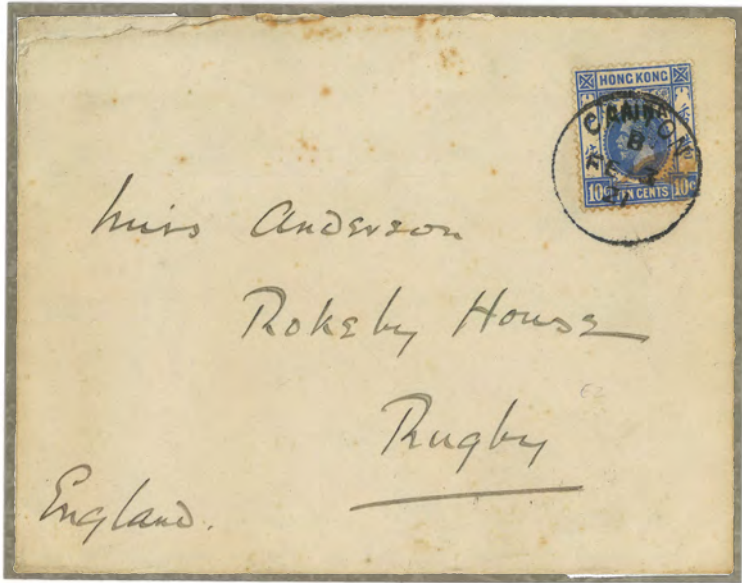 HONG KONG
CHINA
CANTON
B
FE 3
10c TEN CENTS 10c
Miss Anderson
Rokeby House
Rugby
England.